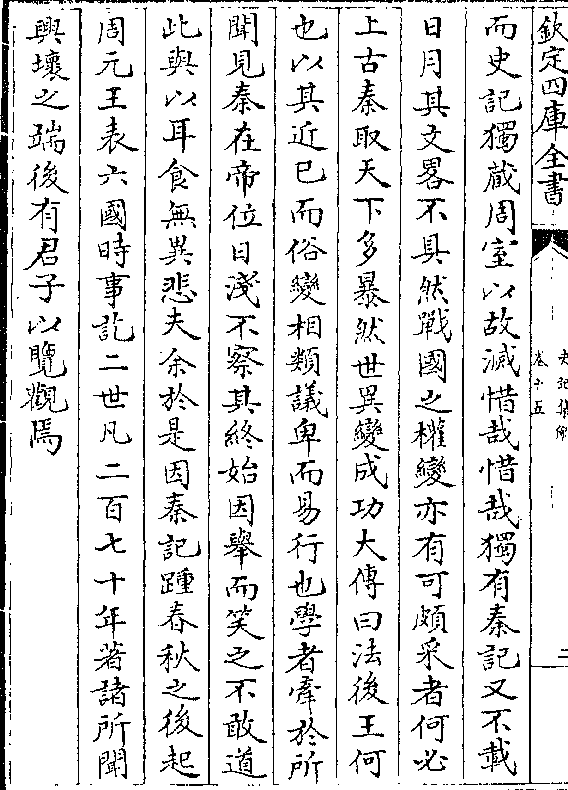 欽定四庫全書
史記集解
卷十五
二
而史記獨藏周室以故滅惜哉惜哉獨有秦記又不載
日月其文畧不具然戰國之權變亦有可頗采者何必
上古秦取天下多暴然世異變成功大傳曰法後王何
也以其近已而俗變相類議卑而易行也學者牽於所
聞見秦在帝位日淺不察其終始因舉而笑之不敢道
此與以耳食無異悲夫余於是因秦記踵春秋之後起
周元王表六國時事訖二世凡二百七十年著諸所聞
興壞之端後有君子以覽觀焉